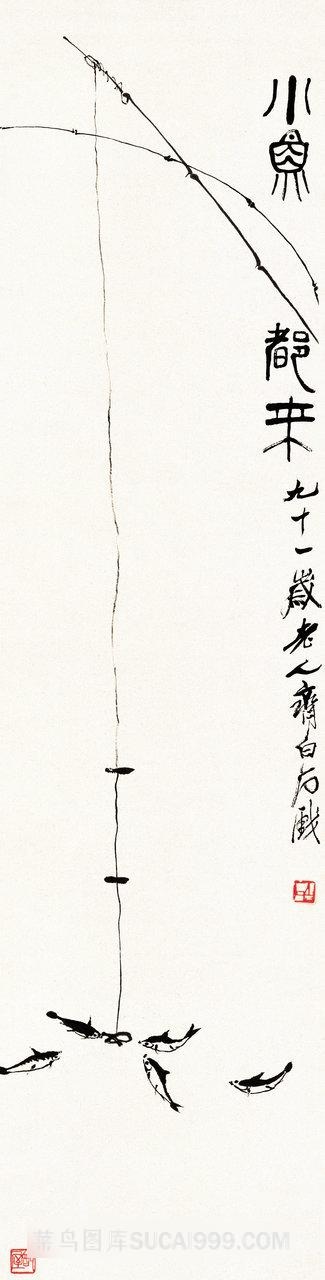 小魚都来
九十一歲老人齊白石戲
菜鸟图库SUCAI999.COM